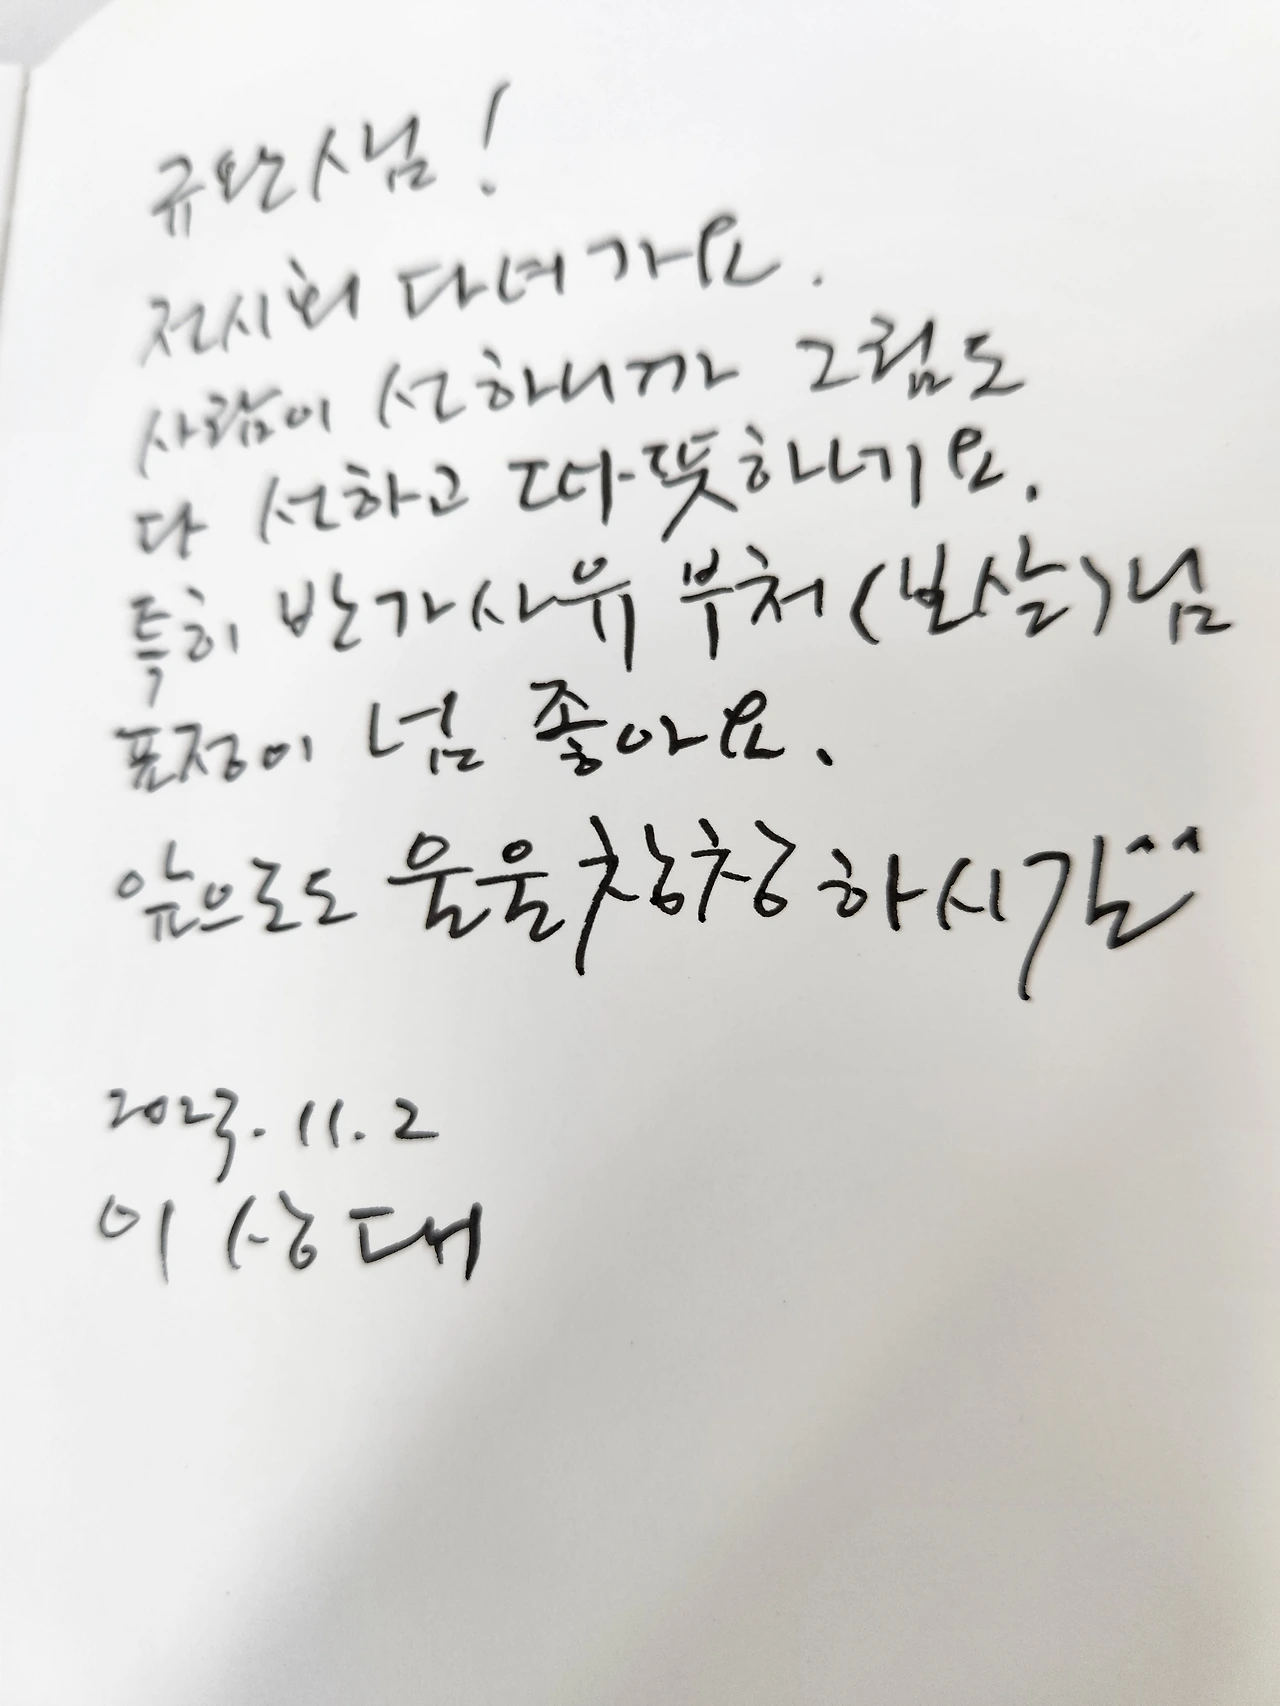 규완샘님!
전시회 다녀가요.
사람이 선하니까 그림도
다 선하고 따뜻하네요.
특히 반가사유 부처(보살)님
표정이 넘 좋아요.
앞으로도 울울창창하시길^^
2023. 11. 2
이상대